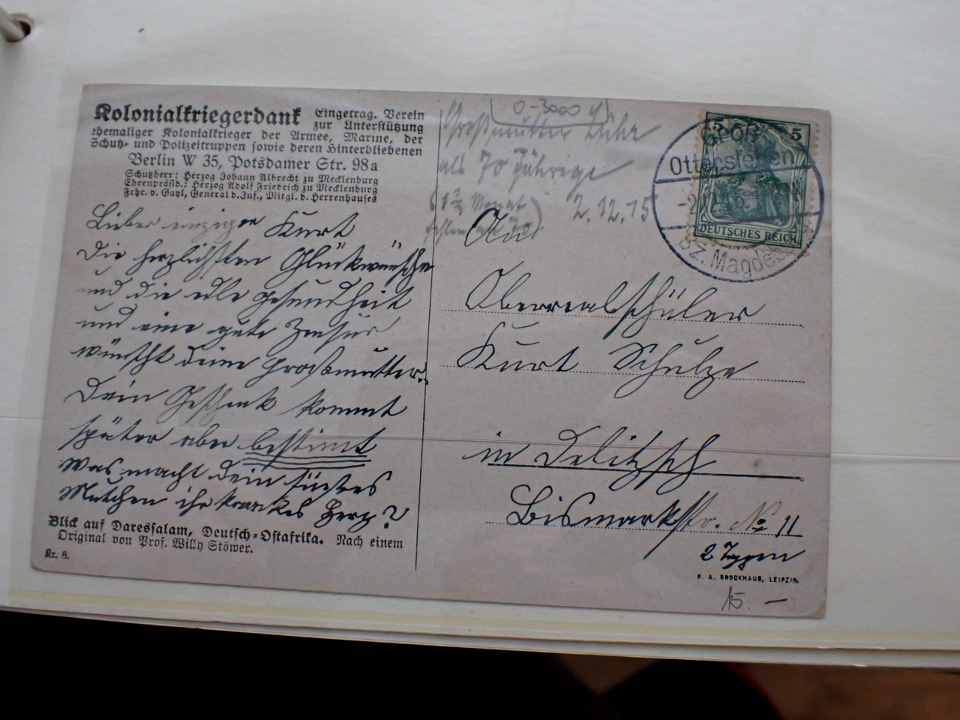 Kolonialkriegerdank Eingetrag. Verein
zur Unterstützung
ehemaliger Kolonialkrieger der Armee, Marine, der
Schutz- und Polizeitruppen sowie deren Hinterbliebenen
Berlin W 35, Potsdamer Str. 98a
Schutzherr: Herzog Johann Albrecht zu Mecklenburg
Ehrenpräsid.: Herzog Adolf Friedrich zu Mecklenburg
Frhr. v. Gayl, General d. Inf., Mitgl. d. Herrenhauses
Lieber einziger Kurt
Die herzlichsten Glückwünsche
und die edle Gesundheit
und eine gute Zensur
wünscht deine Grossmutter.
Dein Geschenk kommt
später aber bestimt
Was macht Dein
Mutchen ihr krankes Herz?
Blick auf Daressalam, Deutsch-Ostafrika. Nach einem
Original von Prof. Willy Stöwer.
Nr. 8.
0-3000
Großmutter
als 70 jährige
(1 1/2 Monat
2.12.15
5 5
DEUTSCHES REICH
GROSS
Ottersleben
Bz. Magdeb
An
Oberrealschüler
Kurt Schulze
in Delitzsch
Bismarkstr. No 11
2 Typen
F. A. BROCKHAUS, LEIPZIG.
15.–